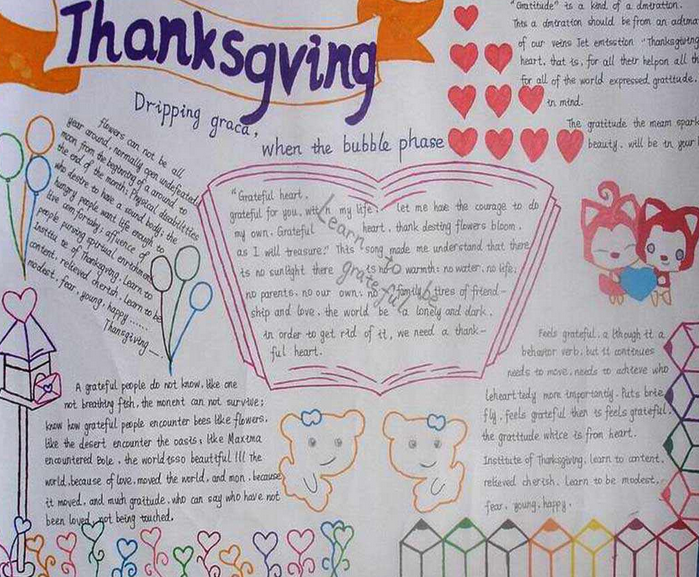 Thanksgiving
Dripping graca,
when the bubble phase
"Gratitude" is a kind of a dmtration.
This a dmtration should be from an
of our veins Jet emtsstion "Thanksgiving
heart, that is, for all their helpon all th
for all of the world expressed gratitude.
in mind.
The gratitude the meam spark
beauty. will be in your
flowers can not be all
year around, normally open undefeated
moon from the beginning of a around to
the end of the month; Physical disabilities
who desire to have a sound body; the
hungry people want life enough to
live comfortably, affluence of
people pursing spiritual enrichment
Institu te of Thanksgiving. Learn to
content, relieved cherish. Learn to be
modest, fear, young, happy ......
Thansgiving
"Grateful heart,
grateful for you, with n my life, let me hae the courage to do
my own. Grateful heart, thank desting flowers bloom,
as I will treasure." This song made me understand that there
is no sunlight there is no warmth; no water, no life;
no parents, no our own; no family, tires of friend-
ship and love, the world be a lonely and dark.
in order to get rid of it, we need a thank-
ful heart.
Learn to be
grateful
A grateful people do not know, like one
not breathing fish, the monent can not survive;
know how grateful people encounter bees like flowers,
like the desert encounter the oasis, like Maxima
encountered Bole, the world is so beautiful !!! The
world, because of love, moved the world, and mon, because
it moved, and much graitude, who can say who have not
been loved, not being touched.
Feels grateful, a lthough it a
behavior verb, but it continues
needs to move, needs to achieve who
Leheart tedly more importantly. Puts brie
fly, feels grateful then is feels grateful,
the gratitude whitce is from heart.
Institute of Thanksgiving, learn to content,
relieved cherish. Learn to be modest,
fear, young, happy.